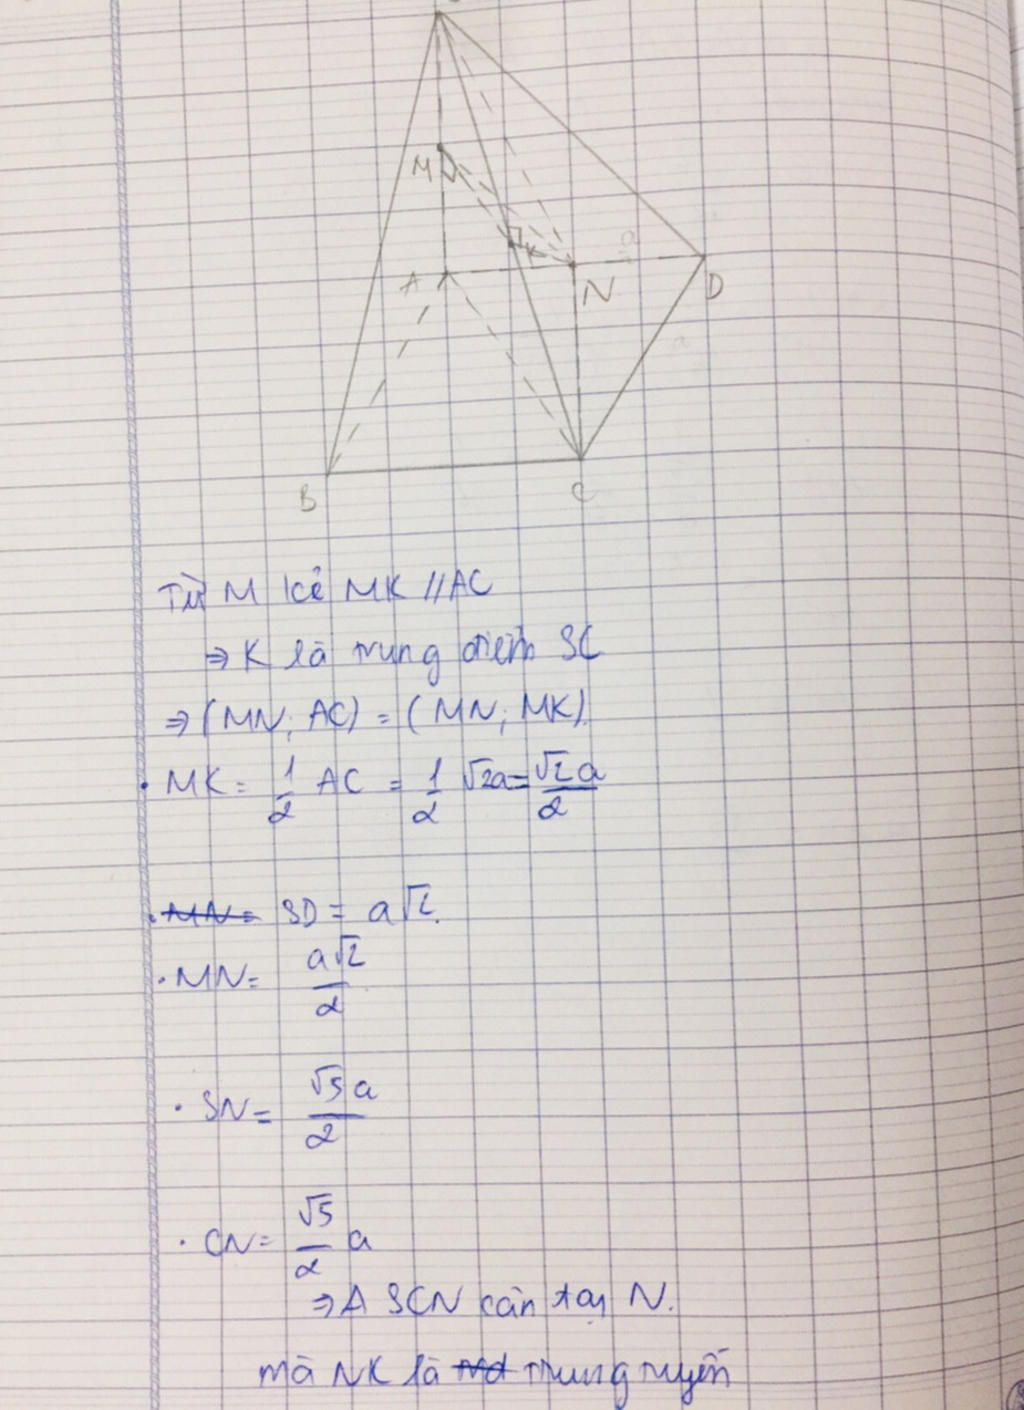 M
A
K
N
D
B
C
Từ M kẻ MK // AC
⇒ K là trung điểm SC
⇒ (MN; AC) = (MN; MK)
• MK = 1/2 AC = 1/2 √2a = √2a/2
• MN = SD = a√2.
• MN = a√2/2
• SN = √5a/2
• CN = √5/2 a
⇒ Δ SCN cân tại N.
mà NK là trung tuyến